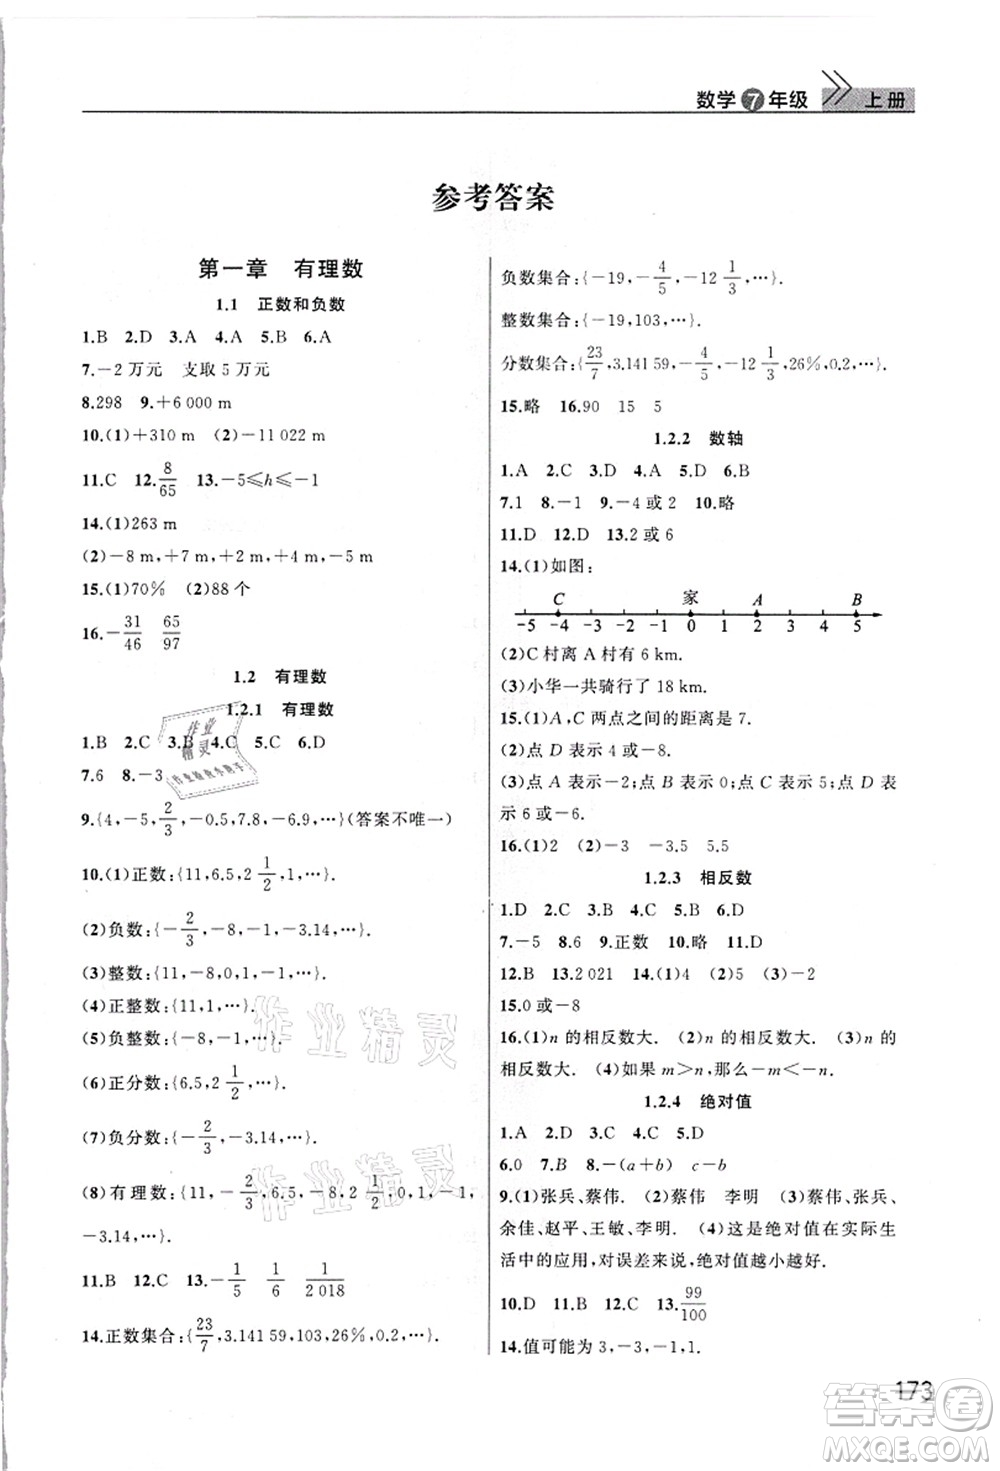 数学7年级 上册
参考答案
第一章 有理数
1.1 正数和负数
1.B 2.D 3.A 4.A 5.B 6.A
7.-2万元 支取5万元
8.298 9.+6 000 m
10.(1)+310 m (2)-11 022 m
11.C 12.8/65 13.-5≤h≤-1
14.(1)263 m
(2)-8 m,+7 m,+2 m,+4 m,-5 m
15.(1)70% (2)88个
16.-31/46 65/97
1.2 有理数
1.2.1 有理数
1.B 2.C 3.B 4.C 5.C 6.D
7.6 8.-3
9.{4,-5,2/3,-0.5,7.8,-6.9,…}(答案不唯一)
10.(1)正数:{11,6.5,2 1/2,1,…}.
(2)负数:{-2/3,-8,-1,-3.14,…}.
(3)整数:{11,-8,0,1,-1,…}.
(4)正整数:{11,1,…}.
(5)负整数:{-8,-1,…}.
(6)正分数:{6.5,2 1/2,…}.
(7)负分数:{-2/3,-3.14,…}.
(8)有理数:{11,-2/3,6.5,-8,2 1/2,0,1,-1,
-3.14,…}.
11.B 12.C 13.-1/5 1/6 1/2 018
14.正数集合:{23/7,3.141 59,103,26%,0.2,…}.
负数集合:{-19,-4/5,-12 1/3,…}.
整数集合:{-19,103,…}.
分数集合:{23/7,3.141 59,-4/5,-12 1/3,26%,0.2,…}.
15.略 16.90 15 5
1.2.2 数轴
1.A 2.C 3.D 4.A 5.D 6.B
7.1 8.-1 9.-4或2 10.略
11.D 12.D 13.2或6
14.(1)如图:
C 家 A B
-5 -4 -3 -2 -1 0 1 2 3 4 5
(2)C村离A村有6 km.
(3)小华一共骑行了18 km.
15.(1)A,C两点之间的距离是7.
(2)点D表示4或-8.
(3)点A表示-2;点B表示2;点C表示5;点D表
示6或-6.
16.(1)2 (2)-3 -3.5 5.5
1.2.3 相反数
1.D 2.C 3.B 4.C 5.B 6.D
7.-5 8.6 9.正数 10.略 11.D
12.B 13.2 021 14.(1)4 (2)5 (3)-12
15.0或-8
16.(1)n的相反数大. (2)n的相反数大. (3)n的
相反数大. (4)如果m>n,那么-m<-n.
1.2.4 绝对值
1.A 2.B 3.D 4.C 5.D
6.0 7.B 8.-(a+b) c-b
9.(1)张兵、蔡伟. (2)蔡伟 李明 (3)蔡伟、张兵、
余佳、赵平、王敏、李明. (4)这是绝对值在实际生
活中的应用,对误差来说,绝对值越小越好.
10.D 11.B 12.B 13.99/100
14.值可能为3,-3,-1,1.
173
作业精灵
作业精灵
作业精灵
答案卷
MXQE.COM